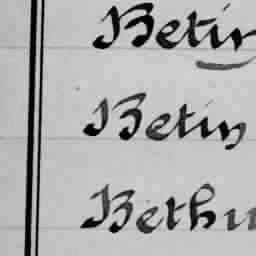 Betir
Betin
Bethu